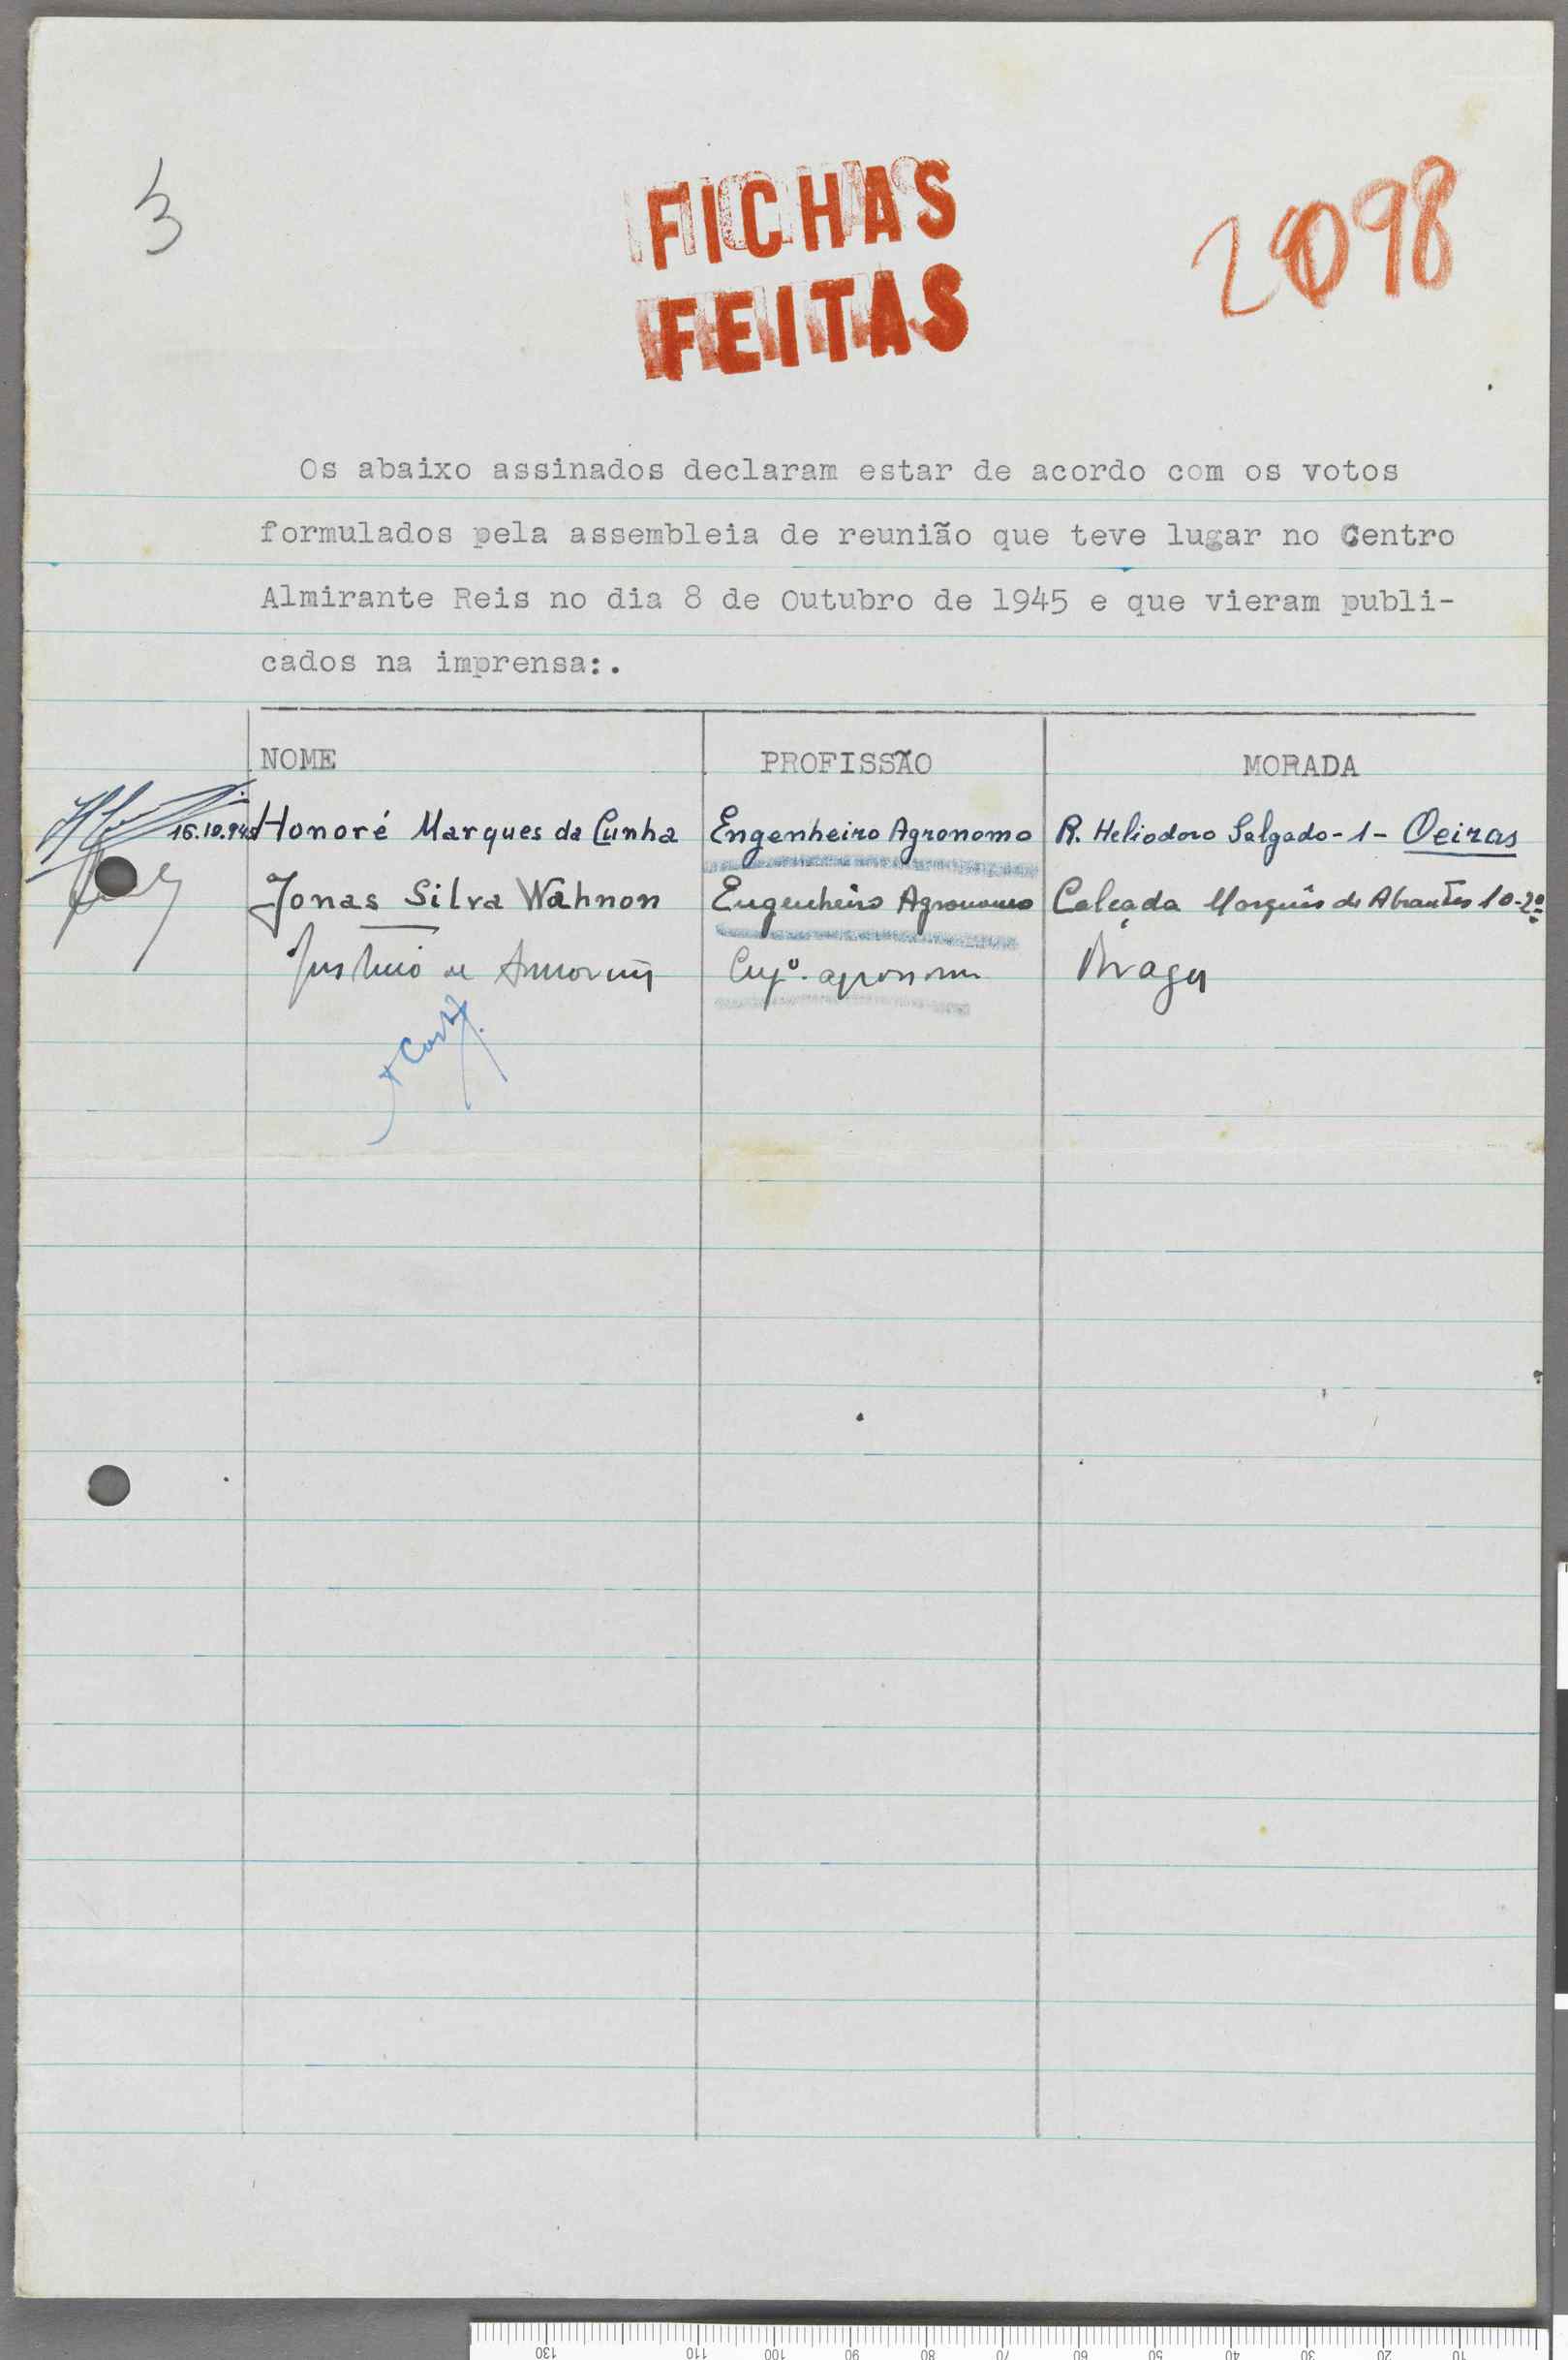 3
FICHAS
FEITAS
2098
Os abaixo assinados declaram estar de acordo com os votos
formulados pela assembleia de reunião que teve lugar no Centro
Almirante Reis no dia 8 de Outubro de 1945 e que vieram publi-
cados na imprensa:.
NOME PROFISSÃO MORADA
Honoré Marques da Cunha Engenheiro Agronomo R. Heliodoro Salgado-1- Oeiras
Jonas Silva Wahnon Engenheiro Agronomo Calçada Marquês de Abrantes 10-2º
de Amorim Engº. agronomo Braga
130 110 100 90 80 70 60 50 40 30 20 10